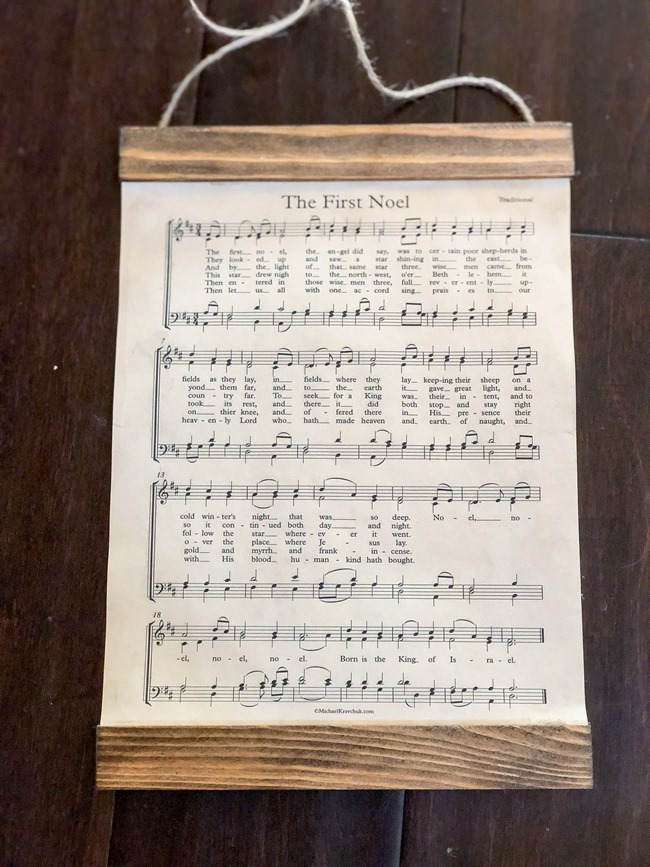 The First Noel
Traditional
The first__ no - el, the__ an-gel did say, was to cer - tain poor shep-herds in
They look - ed__ up and saw__ a star shin-ing in__ the east__ be-
And by__ the__ light of__ that__ same star three__ wise__ men came__ from
This star__ drew nigh to__ the__ north-west, o'er Beth - le - hem__ it
Then en - tered in those wise__ men three, full__ rev - er - ent - ly__ up-
Then let__ us__ all with one__ ac - cord sing__ prais - es to__ our
7
fields as they lay, in__ fields__ where they lay__ keep-ing their sheep on a
yond__ them far, and__ to__ the earth it__ gave__ great light, and__
coun - try far. To__ seek__ for a King was__ their__ in - tent, and to
took__ its rest, and__ there__ it__ did both stop__ and stay right
on__ thier knee, and__ of - fered there in__ His__ pre - sence their
heav - en - ly Lord who__ hath__ made heaven and__ earth__ of naught, and__
13
cold win - ter's night__ that was__ so deep. No - el,__ no -
so it con - tin - ued both day__ and night.
fol - low the star__ where - ev - er it went.
o - ver the place__ where Je - sus lay.
gold__ and myrrh__ and frank - in - cense.
with__ His blood__ hu - man - kind hath bought.
18
-el, no - el, no - el. Born is the King__ of Is - ra - el.
©MichaelKravchuk.com